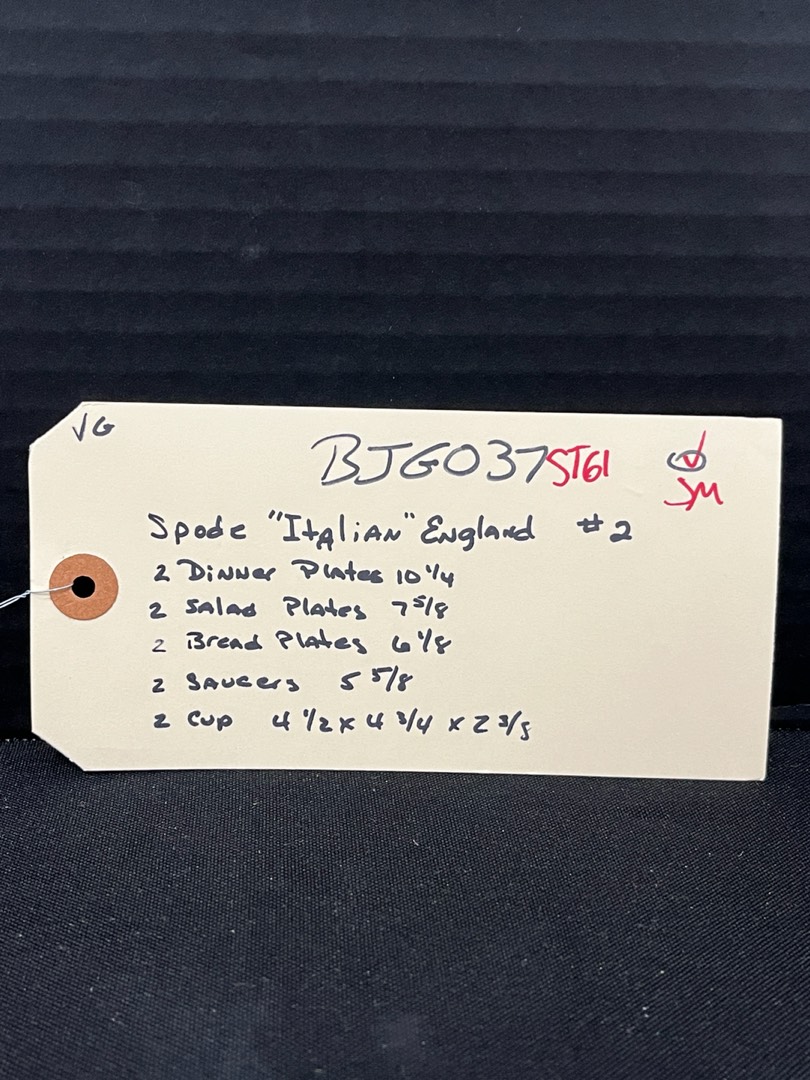 VG
BJG037ST61
JM
Spode "Italian" England #2
2 Dinner Plates 10 1/4
2 Salad Plates 7 5/8
2 Bread Plates 6 1/8
2 Saucers 5 5/8
2 Cup 4 1/2 x 4 3/4 x 2 3/8